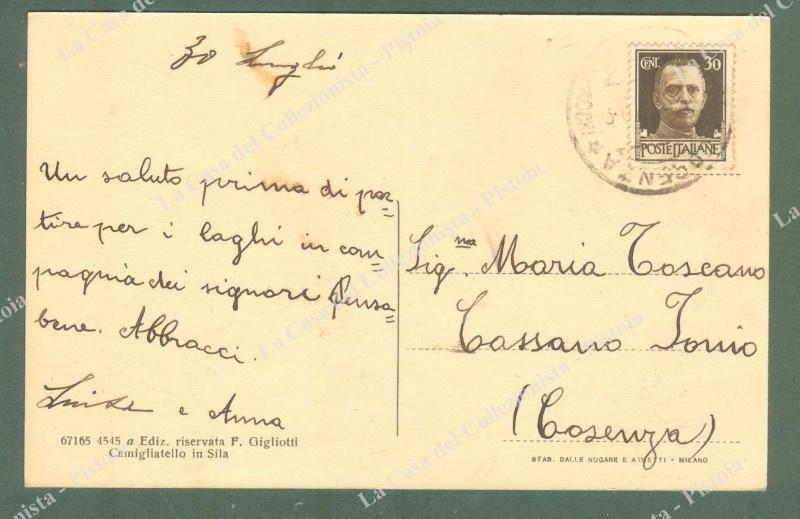 30 Luglio
CENT. 30
POSTE ITALIANE
COSENZA
Un saluto prima di par=
tire per i laghi in com=
pagnia dei signori Pensa=
bene. Abbracci.
Luisa e Anna
Sig.na Maria Toscano
Cassano Jonio
(Cosenza)
67165 4545 a Ediz. riservata F. Gigliotti
Camigliatello in Sila
STAB. DALLE NOGARE E ARMETTI - MILANO
La Casa del Collezionista - Pistoia